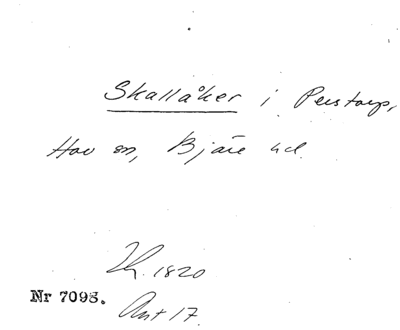 Skallåker i Perstorp,
Hov sn, Bjäre hd.
Lh. 1820
Nr 7098.
Ant 17.